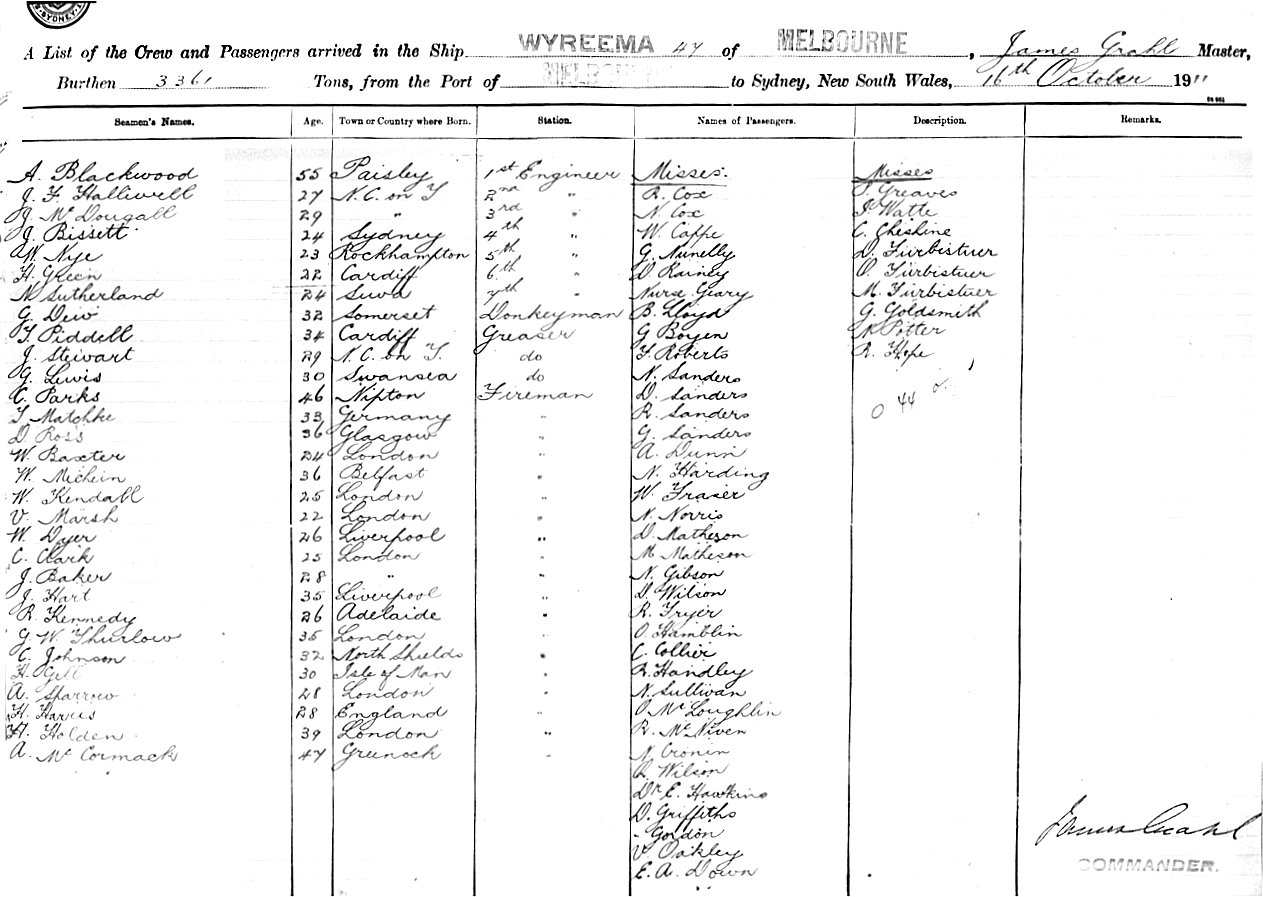 SYDNEY
A List of the Crew and Passengers arrived in the Ship WYREEMA 47 of MELBOURNE, James Grahl Master,
Burthen 3361 Tons, from the Port of MELBOURNE to Sydney, New South Wales, 16th October 1911
Seamen's Names. Age. Town or Country where Born. Station. Names of Passengers. Description. Remarks.
A. Blackwood 55 Paisley 1st Engineer Misses. Misses
J. F. Halliwell 27 N.C. on T 2nd " R. Cox Greaves
J. McDougall 29 " 3rd " N. Cox J. Watte
J. Bissett 24 Sydney 4th " W. Cappe C. Cheshine
W. Nye 23 Rockhampton 5th " G. Nunelly D. Furbistuer
H. Green 22 Cardiff 6th " D. Rainey O. Furbistuer
N. Sutherland 24 Suva 7th " Nurse Geary M. Furbistuer
G. Dew 32 Somerset Donkeyman B. Lloyd G. Goldsmith
T. Piddell 34 Cardiff Greaser G Boyen Potter
J. Stewart 29 N.C. on T. do F. Roberts R. Hope
G. Lewis 30 Swansea do N. Sanders
C. Parks 46 Nipton Fireman D. Sanders
T. Matchke 33 Germany " R. Sanders 44
D. Ross 36 Glasgow " G. Sanders
W. Baxter 24 London " A. Dunn
W. Michein 36 Belfast " N. Harding
W. Kendall 25 London " W. Fraser
V. Marsh 22 London " N. Norris
W. Dyer 26 Liverpool " D. Matheson
C. Clark 25 London " M Matheson
J. Baker 28 " " N. Gibson
J. Hart 35 Liverpool " D. Wilson
R. Kennedy 26 Adelaide " R. Fryer
G. W. Thurlow 35 London " O. Hamblin
C. Johnson 32 North Shields " C. Collier
H. Gill 30 Isle of Man " R. Handley
A. Sparrow 28 London " N. Sullivan
H. Harris 28 England " O. McLoughlin
H. Holden 39 London " R. McNiven
A. McCormack 47 Greenock " N Cronin
R. Wilson
Dr E. Hawkins
D. Griffiths
- Gordon
V. Oakley
E. A. Down
James Grahl
COMMANDER.